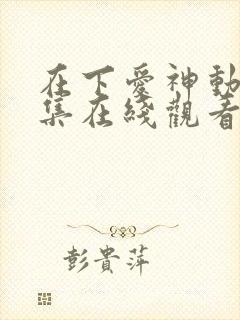 在下愛神動
集在綫觀看
彭貴萍